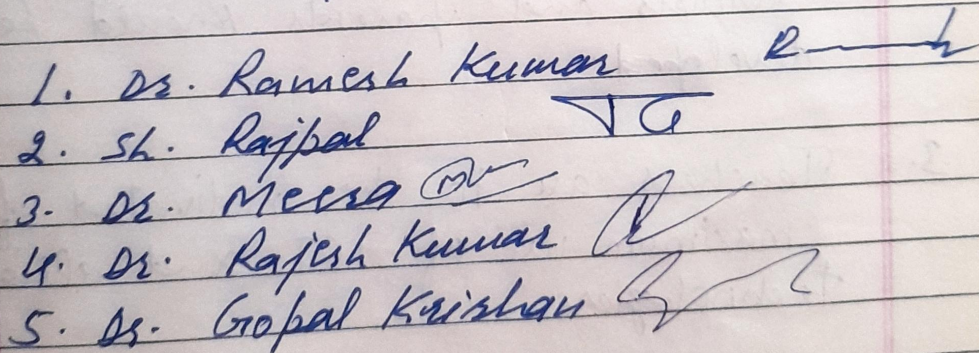 1. Dr. Ramesh Kumar
2. Sh. Rajpal
3. Dr. Meera
4. Dr. Rajesh Kumar
5. Dr. Gopal Krishan